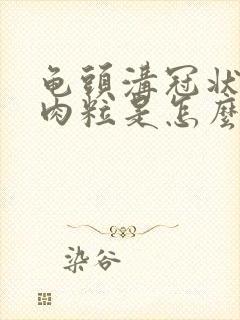 龟頭溝冠状
肉粒是怎麼
染谷